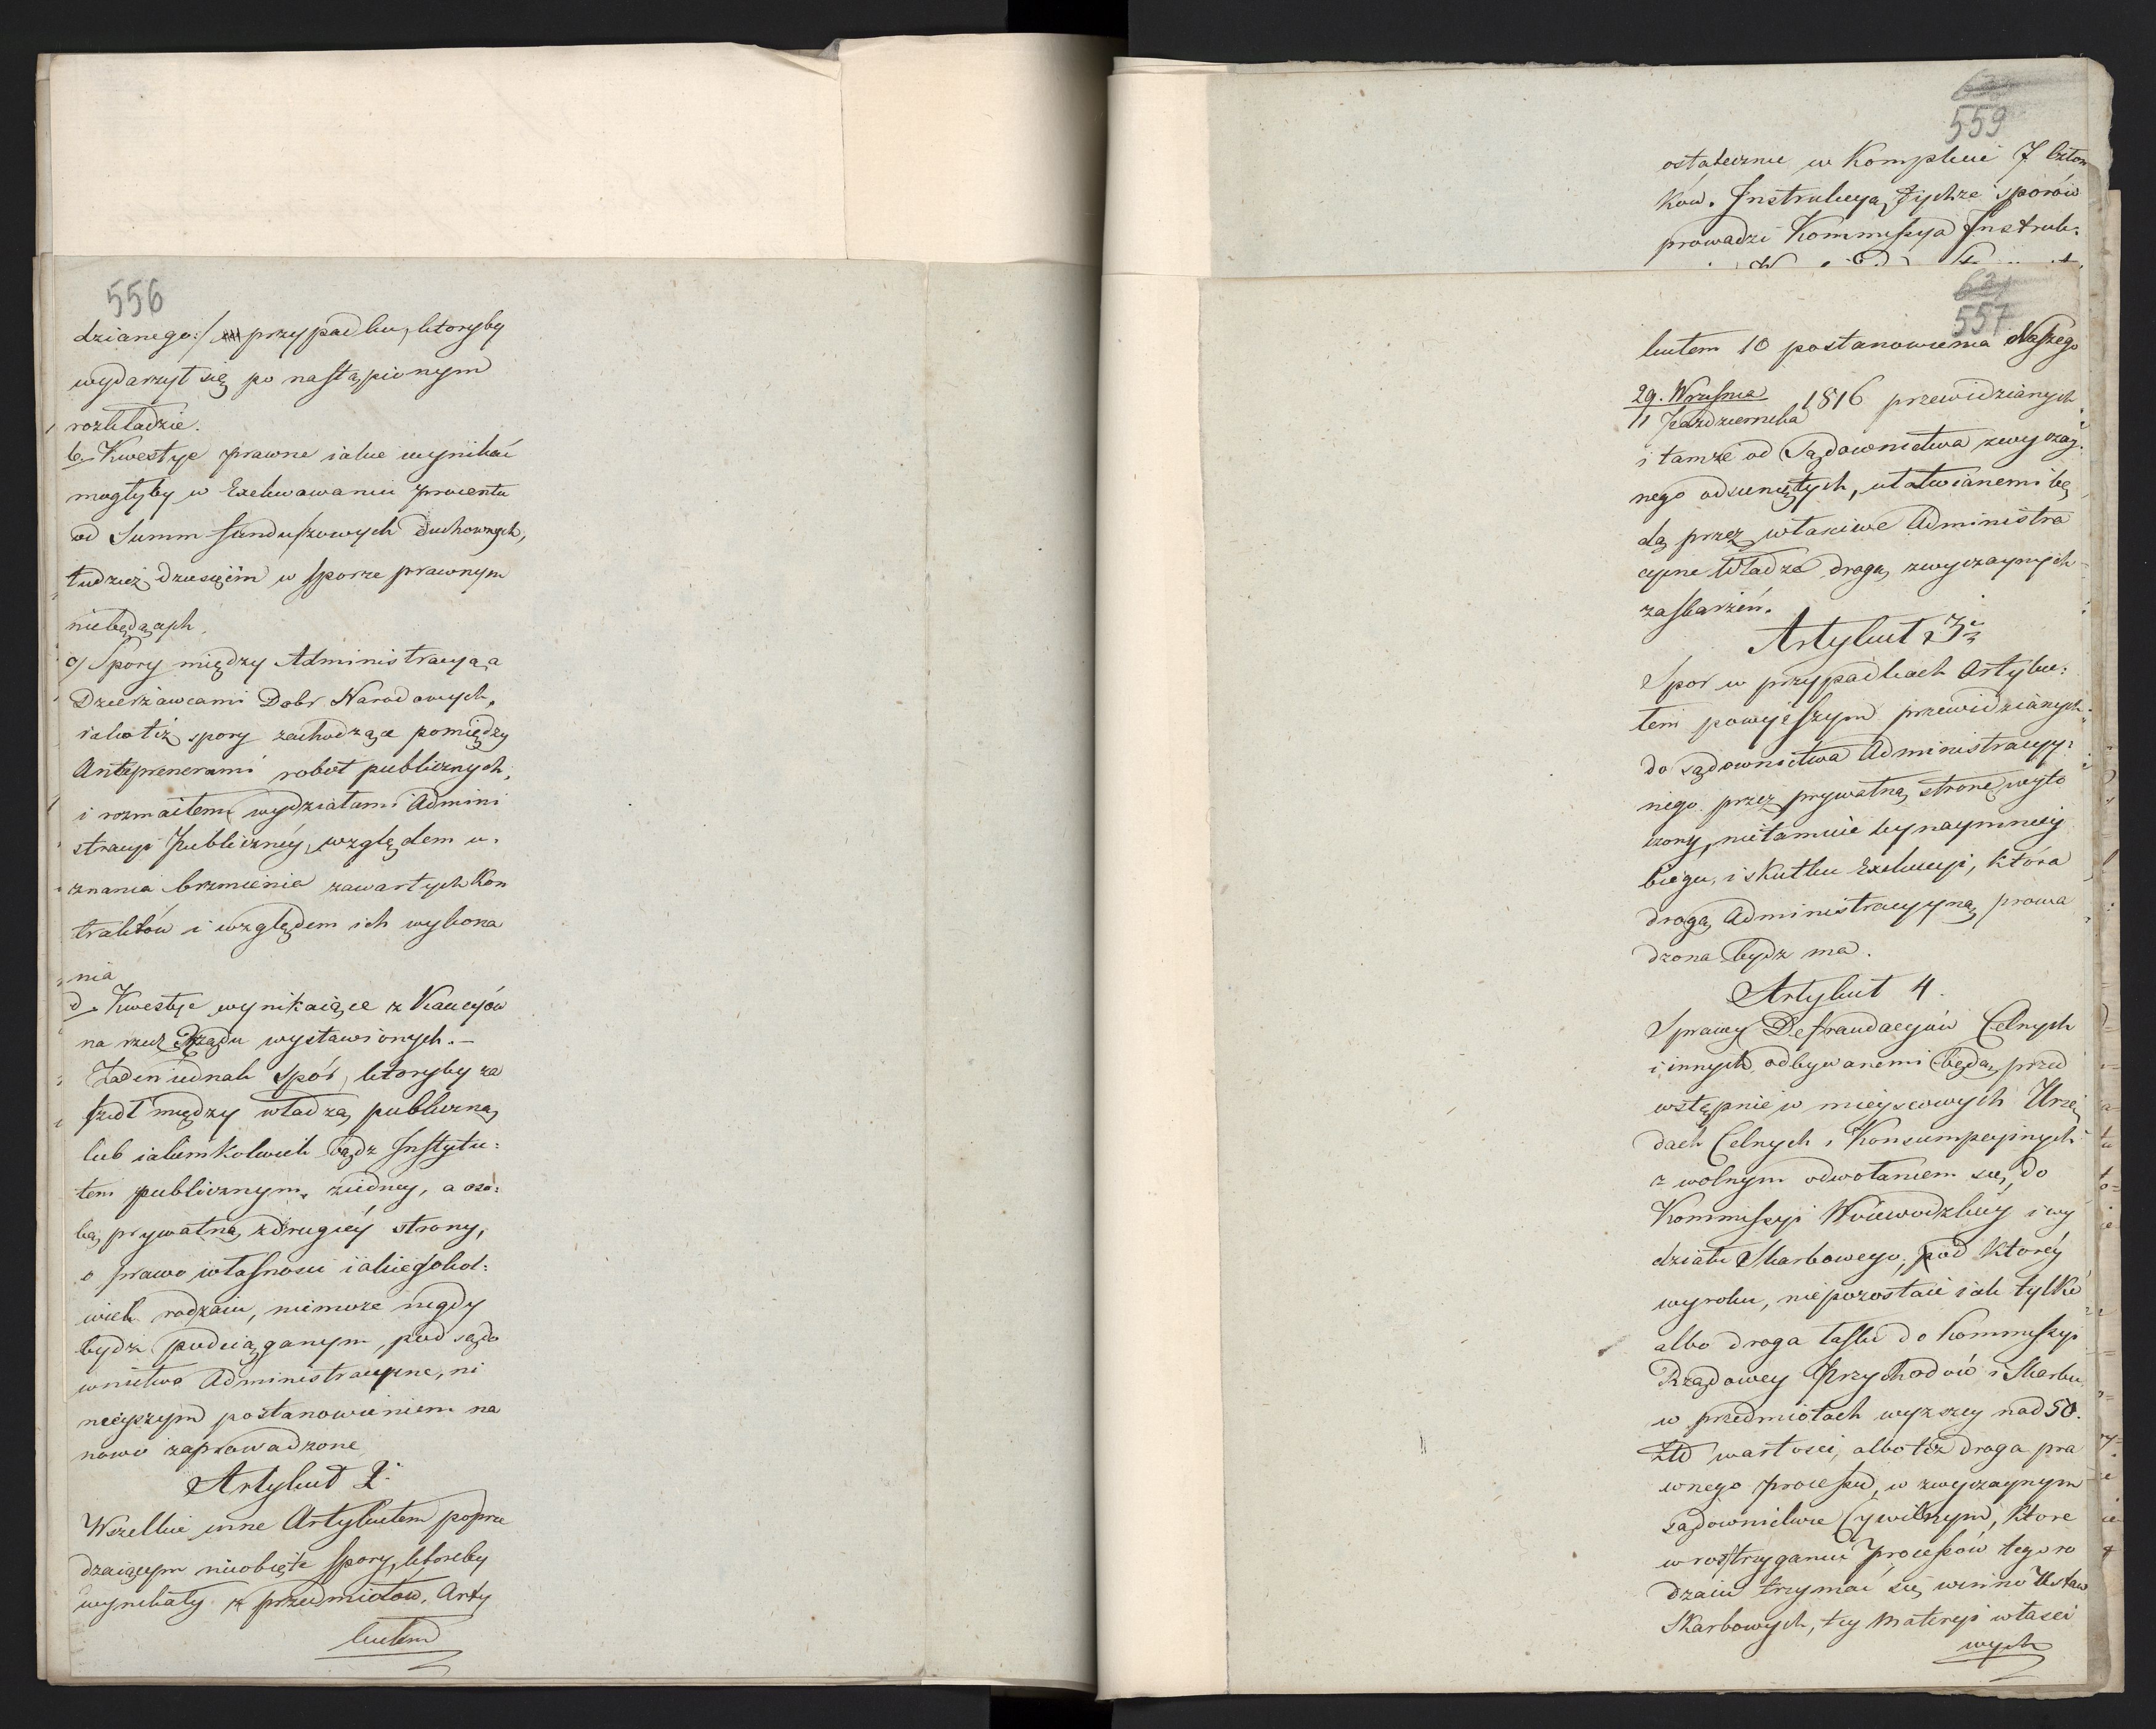 556
dzianego:/ przypadku, ktoryby
wydarzył się po nastąpionym
rozkładzie.
b. Kwestye prawne iakie wynikać
mogłyby w Exekwowaniu procentu
od Summ funduszowych duchownych,
tudzież dziesięcin w sporze prawnym
niebędących.
c/ Spory między Administracyą a
Dzierżawcami Dobr Narodowych,
iakotéż spory zachodzące pomiędzy
Antreprenerami robót publicznych,
i rozmaitemi wydziałami Admini
stracyi Publiczney, względem u.
znania brzmienia zawartych Kon
traktów i względem ich wykona
nia
d. Kwestye wynikaiące z Kaucyów
na rzecz Rządu wystawionych. —
Żaden iednak Spór, ktoryby za
szedł między władzą publiczną
lub iakiemkolwiek bądz Instytu:
tem publicznym, ziedney, a oso:
bą prywatną zdrugiéy strony,
o prawo własnosci iakiegokol:
wiek rodzaiu, niemoże nigdy
bydz podciąganym, pod sądo
wnictwo Administracyine, ni
nieyszym postanowieniem na
nowo zaprowadzone
Artykuł 2:
Wszelkie inne Artykułem poprze
dzaiącym nieobięte spory, któreby
wynikały z przedmiotów, Arty
kułem
559
ostatecznie w Komplecie 7 Człon
ków. Instrukcyą tychże sporów
prowadzi Kommissya Instruk:
557
kułem 10 postanowienia Naszego
29. Wrzesnia
11 Pazdziernika 1816 przewidzianych
i tamże od Sądownictwa zwyczay.
nego odsuniętych, ułatwianemi bę
dą przez własciwe Administra
cyine Władze drogą zwyczaynych
zaskarżeń.
Artykuł 3:
Spor w przypadkach Artyku:
łem powyższym przewidzianych
do sądownictwa Administracyy:
nego przez prywatną stronę wyto
czony, nietamuie bynaymniey
biegu, i skutku Exekucyi, która
drogą Administracyyną prowa
dzona bydz ma.
Artykuł 4.
Sprawy Defraudacyów Celnych
i innych odbywanemi będą, przed
wstępnie w mieyscowych Urzę
dach Celnych i Konsumpcyinych
z wolnym odwołaniem się do
Kommissyi Woiewodzkiéy i wy
działu Skarbowego, pod któréy
wyroku, niepozostaie iak tylko
albo droga łaski do Kommissyi
Rządowey Przychodów i Skarbu
w przedmiotach wyższey nad 50.
Złł wartosci, albo też droga pra
wnego processu, w zwyczaynym
sądownictwie Cywilnym, które
w rostrzyganiu Processów tego ro
dzaiu trzymać się winno Ustaw
Skarbowych, tey materyi własci
wych